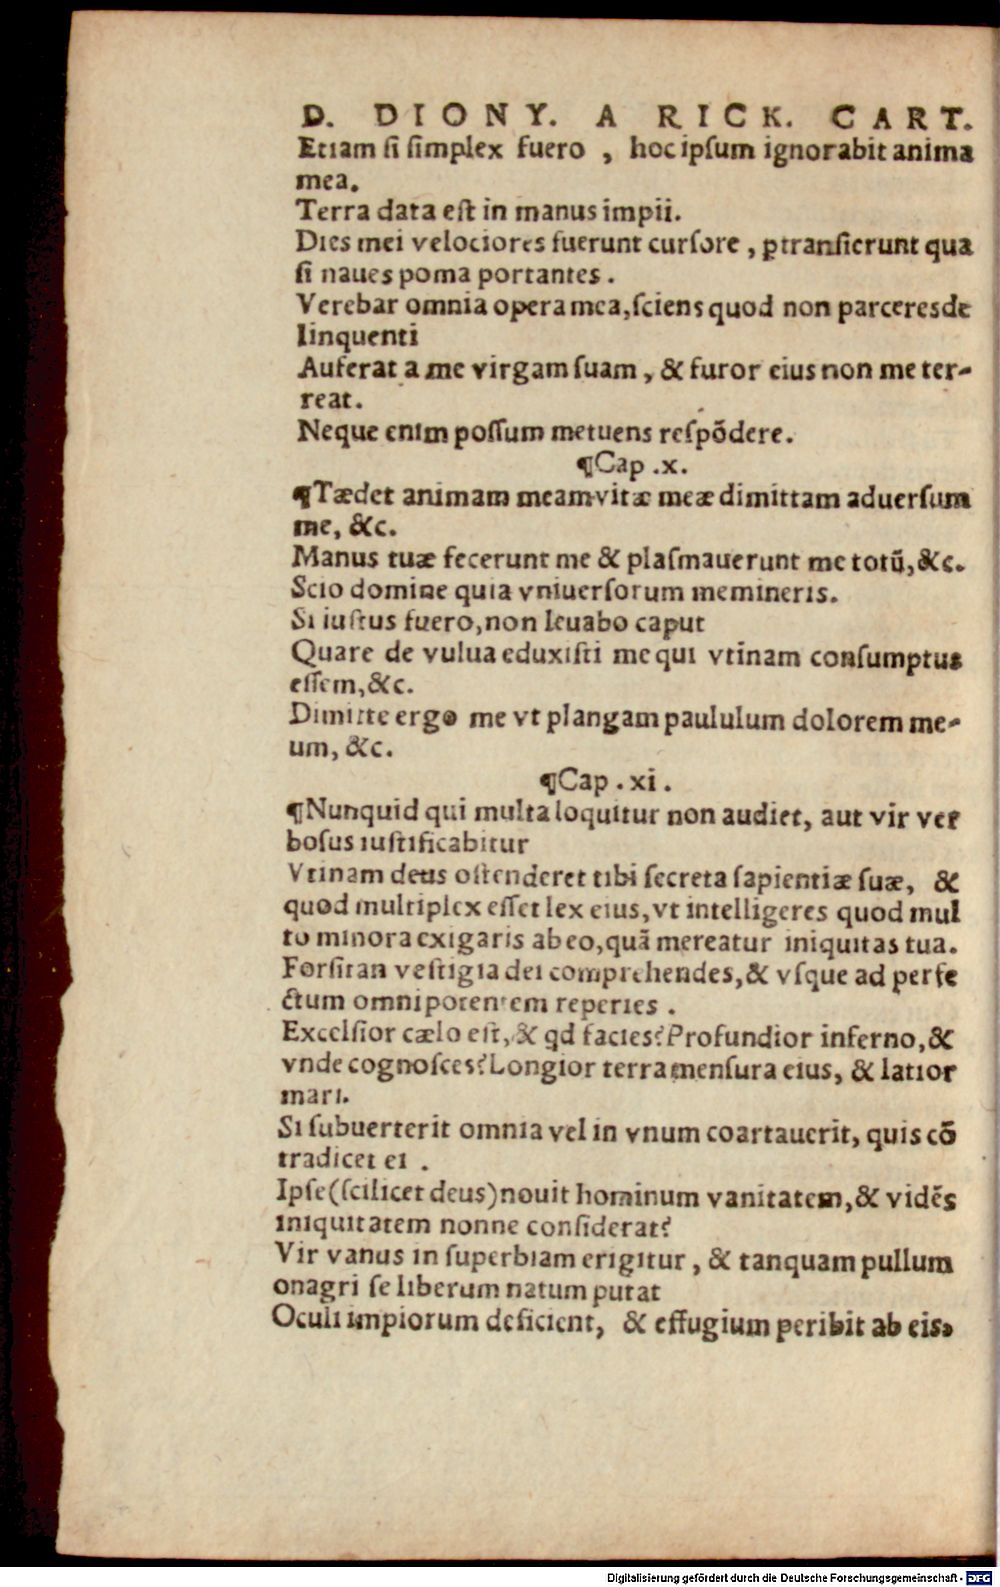 D. DIONY. A RICK. CART.
Etiam si simplex fuero , hoc ipsum ignorabit anima
mea.
Terra data est in manus impii.
Dies mei velociores fuerunt cursore , ꝑtransierunt qua
si naues poma portantes .
Verebar omnia opera mea,sciens quod non parceres de
linquenti
Auferat a me virgam suam , & furor eius non me ter-
reat.
Neque enim possum metuens respõdere.
¶Cap .x.
¶Tædet animam meam vitæ meæ dimittam aduersum
me, &c.
Manus tuæ fecerunt me & plasmauerunt me totũ,&c.
Scio domine quia vniuersorum memineris.
Si iustus fuero,non leuabo caput
Quare de vulua eduxisti me qui vtinam consumptus
essem,&c.
Dimitte ergo me vt plangam paululum dolorem me-
um, &c.
¶Cap . xi .
¶Nunquid qui multa loquitur non audiet, aut vir ver
bosus iustificabitur
Vtinam deus ostenderet tibi secreta sapientiæ suæ, &
quod multiplex esset lex eius,vt intelligeres quod mul
to minora exigaris ab eo,quã mereatur iniquitas tua.
Forsitan vestigia dei comprehendes,& vsque ad perfe
ctum omnipotentem reperies .
Excelsior cælo est,& qd facies?Profundior inferno,&
vnde cognosces?Longior terra mensura eius, & latior
mari.
Si subuerterit omnia vel in vnum coartauerit, quis cõ
tradicet ei .
Ipse(scilicet deus)nouit hominum vanitatem,& vidẽs
iniquitatem nonne considerat?
Vir vanus in superbiam erigitur , & tanquam pullum
onagri se liberum natum putat
Oculi impiorum deficient, & effugium peribit ab eis,
Digitalisierung gefördert durch die Deutsche Forschungsgemeinschaft - DFG